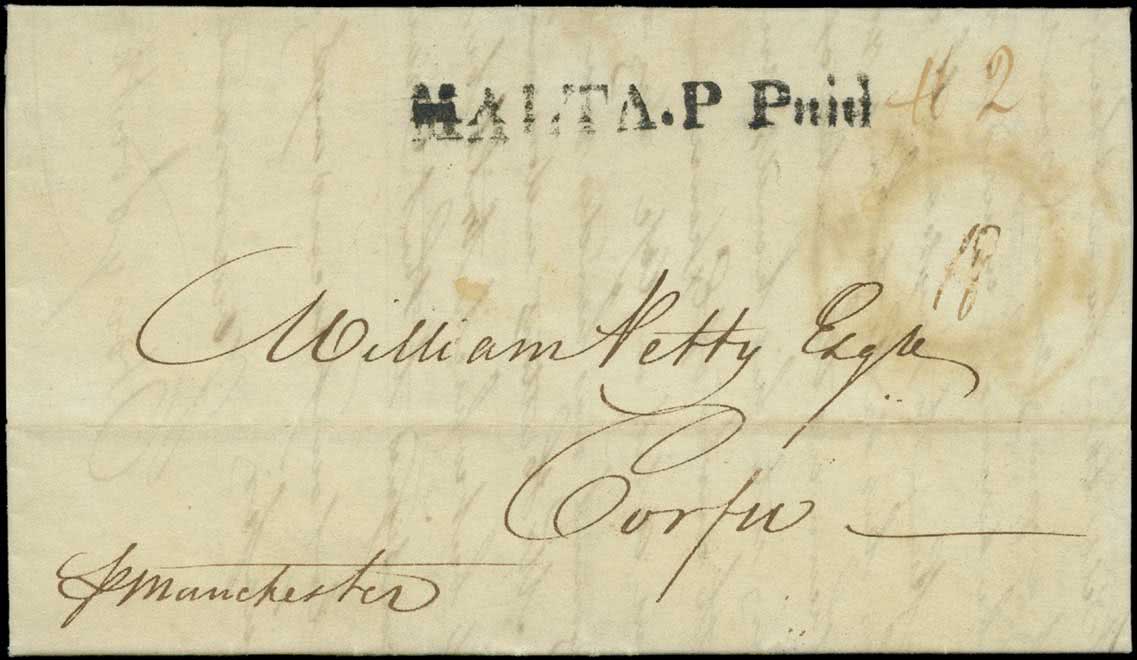 MALTA.P Paid 2
William Petty Esqre
Corfu
p Manchester